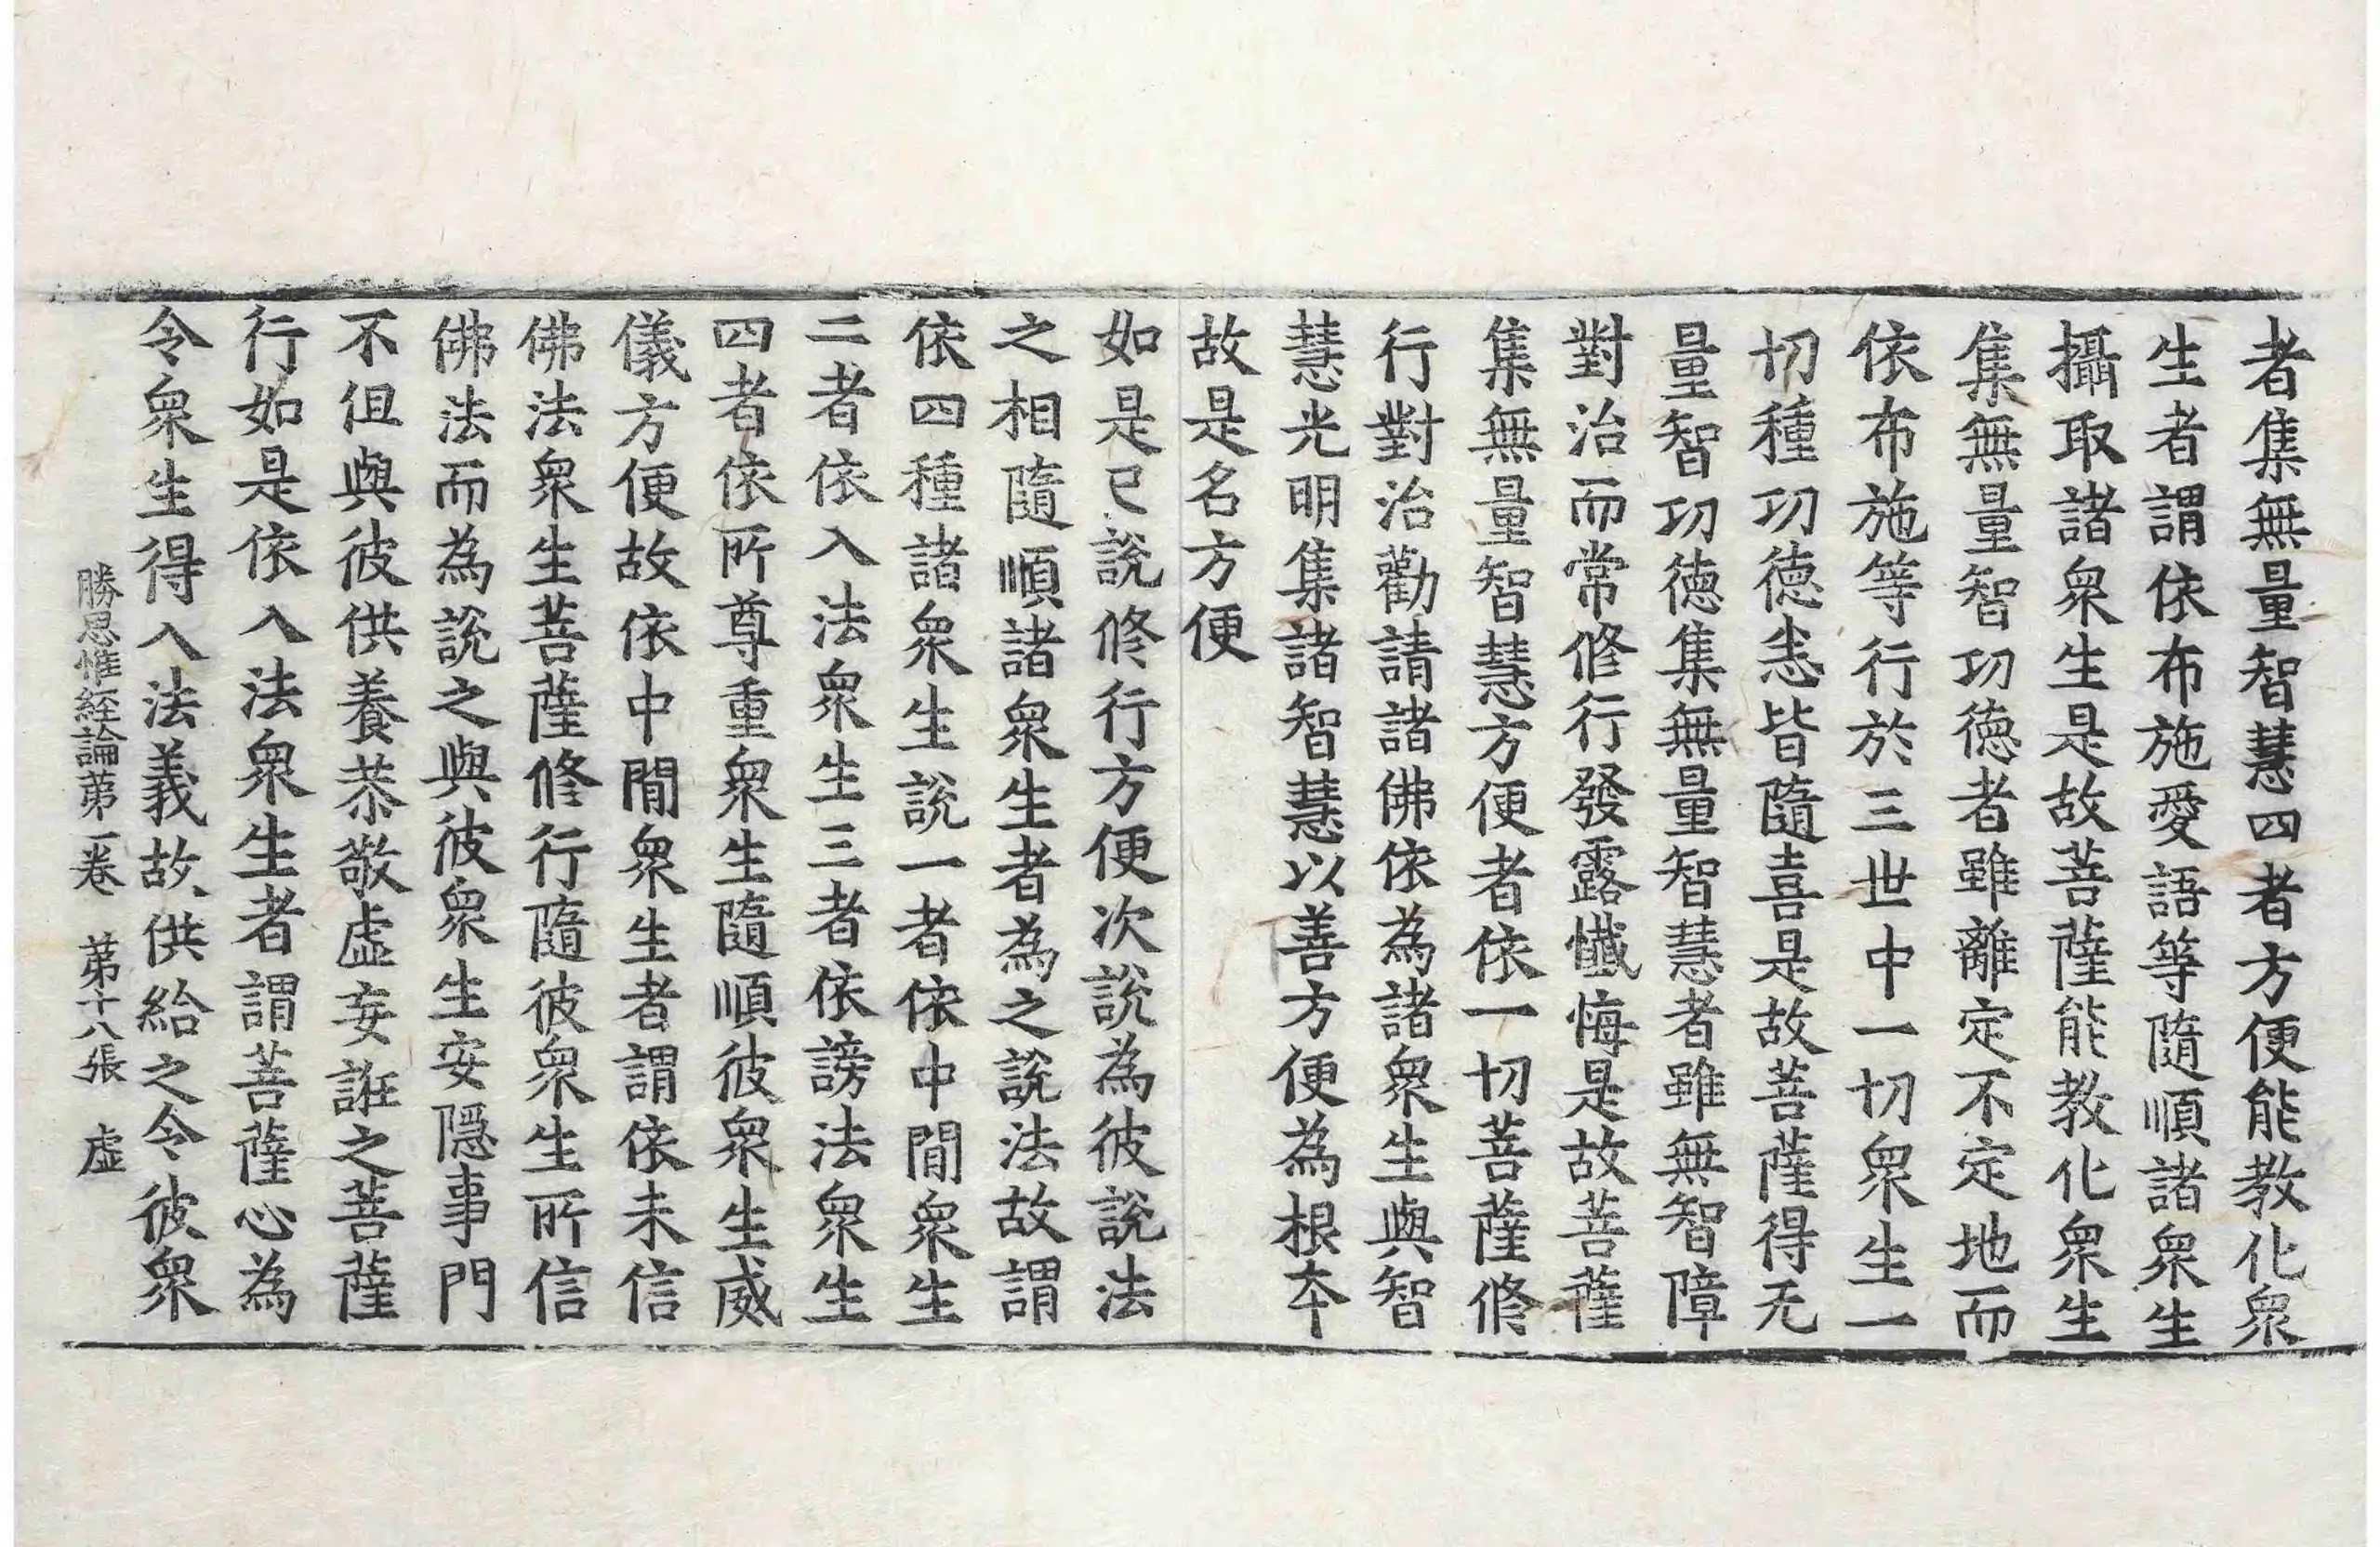 者集無量智慧四者方便能教化衆
生者謂依布施愛語等隨順諸衆生
攝取諸衆生是故菩薩能教化衆生
集無量智功德者雖離定不定地而
依布施等行於三世中一切衆生一
切種功德恚皆隨喜是故菩薩得无
量智功德集無量智慧者雖無智障
對治而常修行發露懺悔是故菩薩
集無量智慧方便者依一切菩薩修
行對治勸請諸佛依為諸衆生與智
慧光明集諸智慧以善方便為根本
故是名方便
如是已說修行方便次說為彼說法
之相隨順諸衆生者為之說法故謂
依四種諸衆生說一者依中間衆生
二者依入法衆生三者依謗法衆生
四者依所尊重衆生隨順彼衆生威
儀方便故依中間衆生者謂依未信
佛法衆生菩薩修行隨彼衆生所信
佛法而為說之與彼衆生安隱事門
不但與彼供養恭敬虛妄誑之菩薩
行如是依入法衆生者謂菩薩心為
令衆生得入法義故供給之令彼衆
勝思惟經論苐一卷 苐十八張 虛